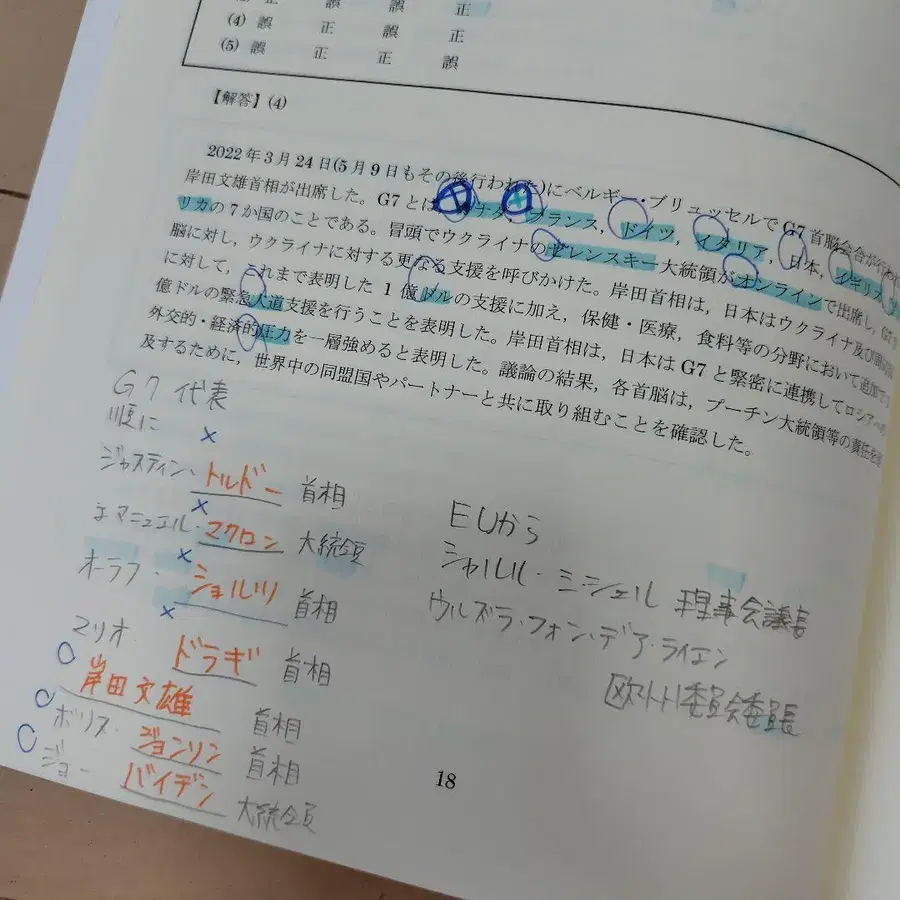 誤 誤 正
(4) 誤 正 誤 正
(5) 誤 正 正 誤
【解答】(4)
2022年3月24日(5月9日もその後行われた)にベルギー・ブリュッセルでG7首脳会合が行われ
岸田文雄首相が出席した。G7とはカナダ,フランス,ドイツ,イタリア,日本,イギリス,
リカの7か国のことである。冒頭でウクライナのゼレンスキー大統領がオンラインで出席し,G7
脳に対し,ウクライナに対する更なる支援を呼びかけた。岸田首相は,日本はウクライナ及び
に対して,これまで表明した1億ドルの支援に加え,保健・医療,食料等の分野において追加で
億ドルの緊急人道支援を行うことを表明した。岸田首相は,日本はG7と緊密に連携してロシアへの
外交的・経済的圧力を一層強めると表明した。議論の結果,各首脳は,プーチン大統領等の責任を
及するために,世界中の同盟国やパートナーと共に取り組むことを確認した。
G7 代表
順に
ジャスティン・トルドー 首相
エマニュエル・マクロン 大統領
オーラフ・ショルツ 首相
マリオ ドラギ 首相
岸田文雄 首相
ボリス・ジョンソン 首相
ジョー バイデン 大統領
EUから
シャルル・ミシェル 理事会議長
ウルズラ・フォン・デア・ライエン
欧州委員会委員長
18